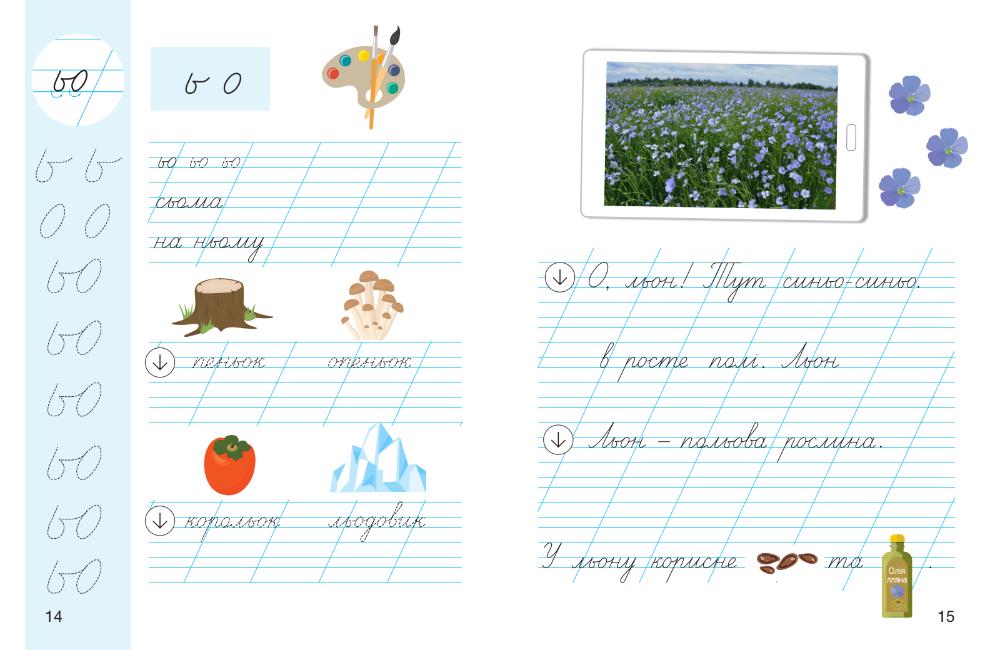 ьо
ь ь
о о
ьо
ьо
ьо
ьо
ьо
ьо
14
ь о
ьо ьо ьо
сьома
на ньому
пеньок опеньок
корольок льодовик
О, льон! Тут синьо-синьо.
в росте полі. Льон
Льон – польова рослина.
У льону корисне та .
Олія
лляна
15